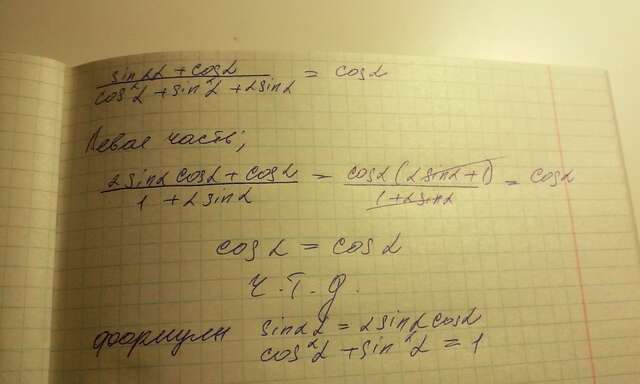 (sin2α + cosα)/(cos²α + sin²α + 2sinα) = cosα
Левая часть;
(2sinα cosα + cosα)/(1 + 2sinα) = (cosα(2sinα + 1))/(1 + 2sinα) = cosα
cosα = cosα
Ч.Т.Д.
формулы sin2α = 2sinα cosα
cos²α + sin²α = 1